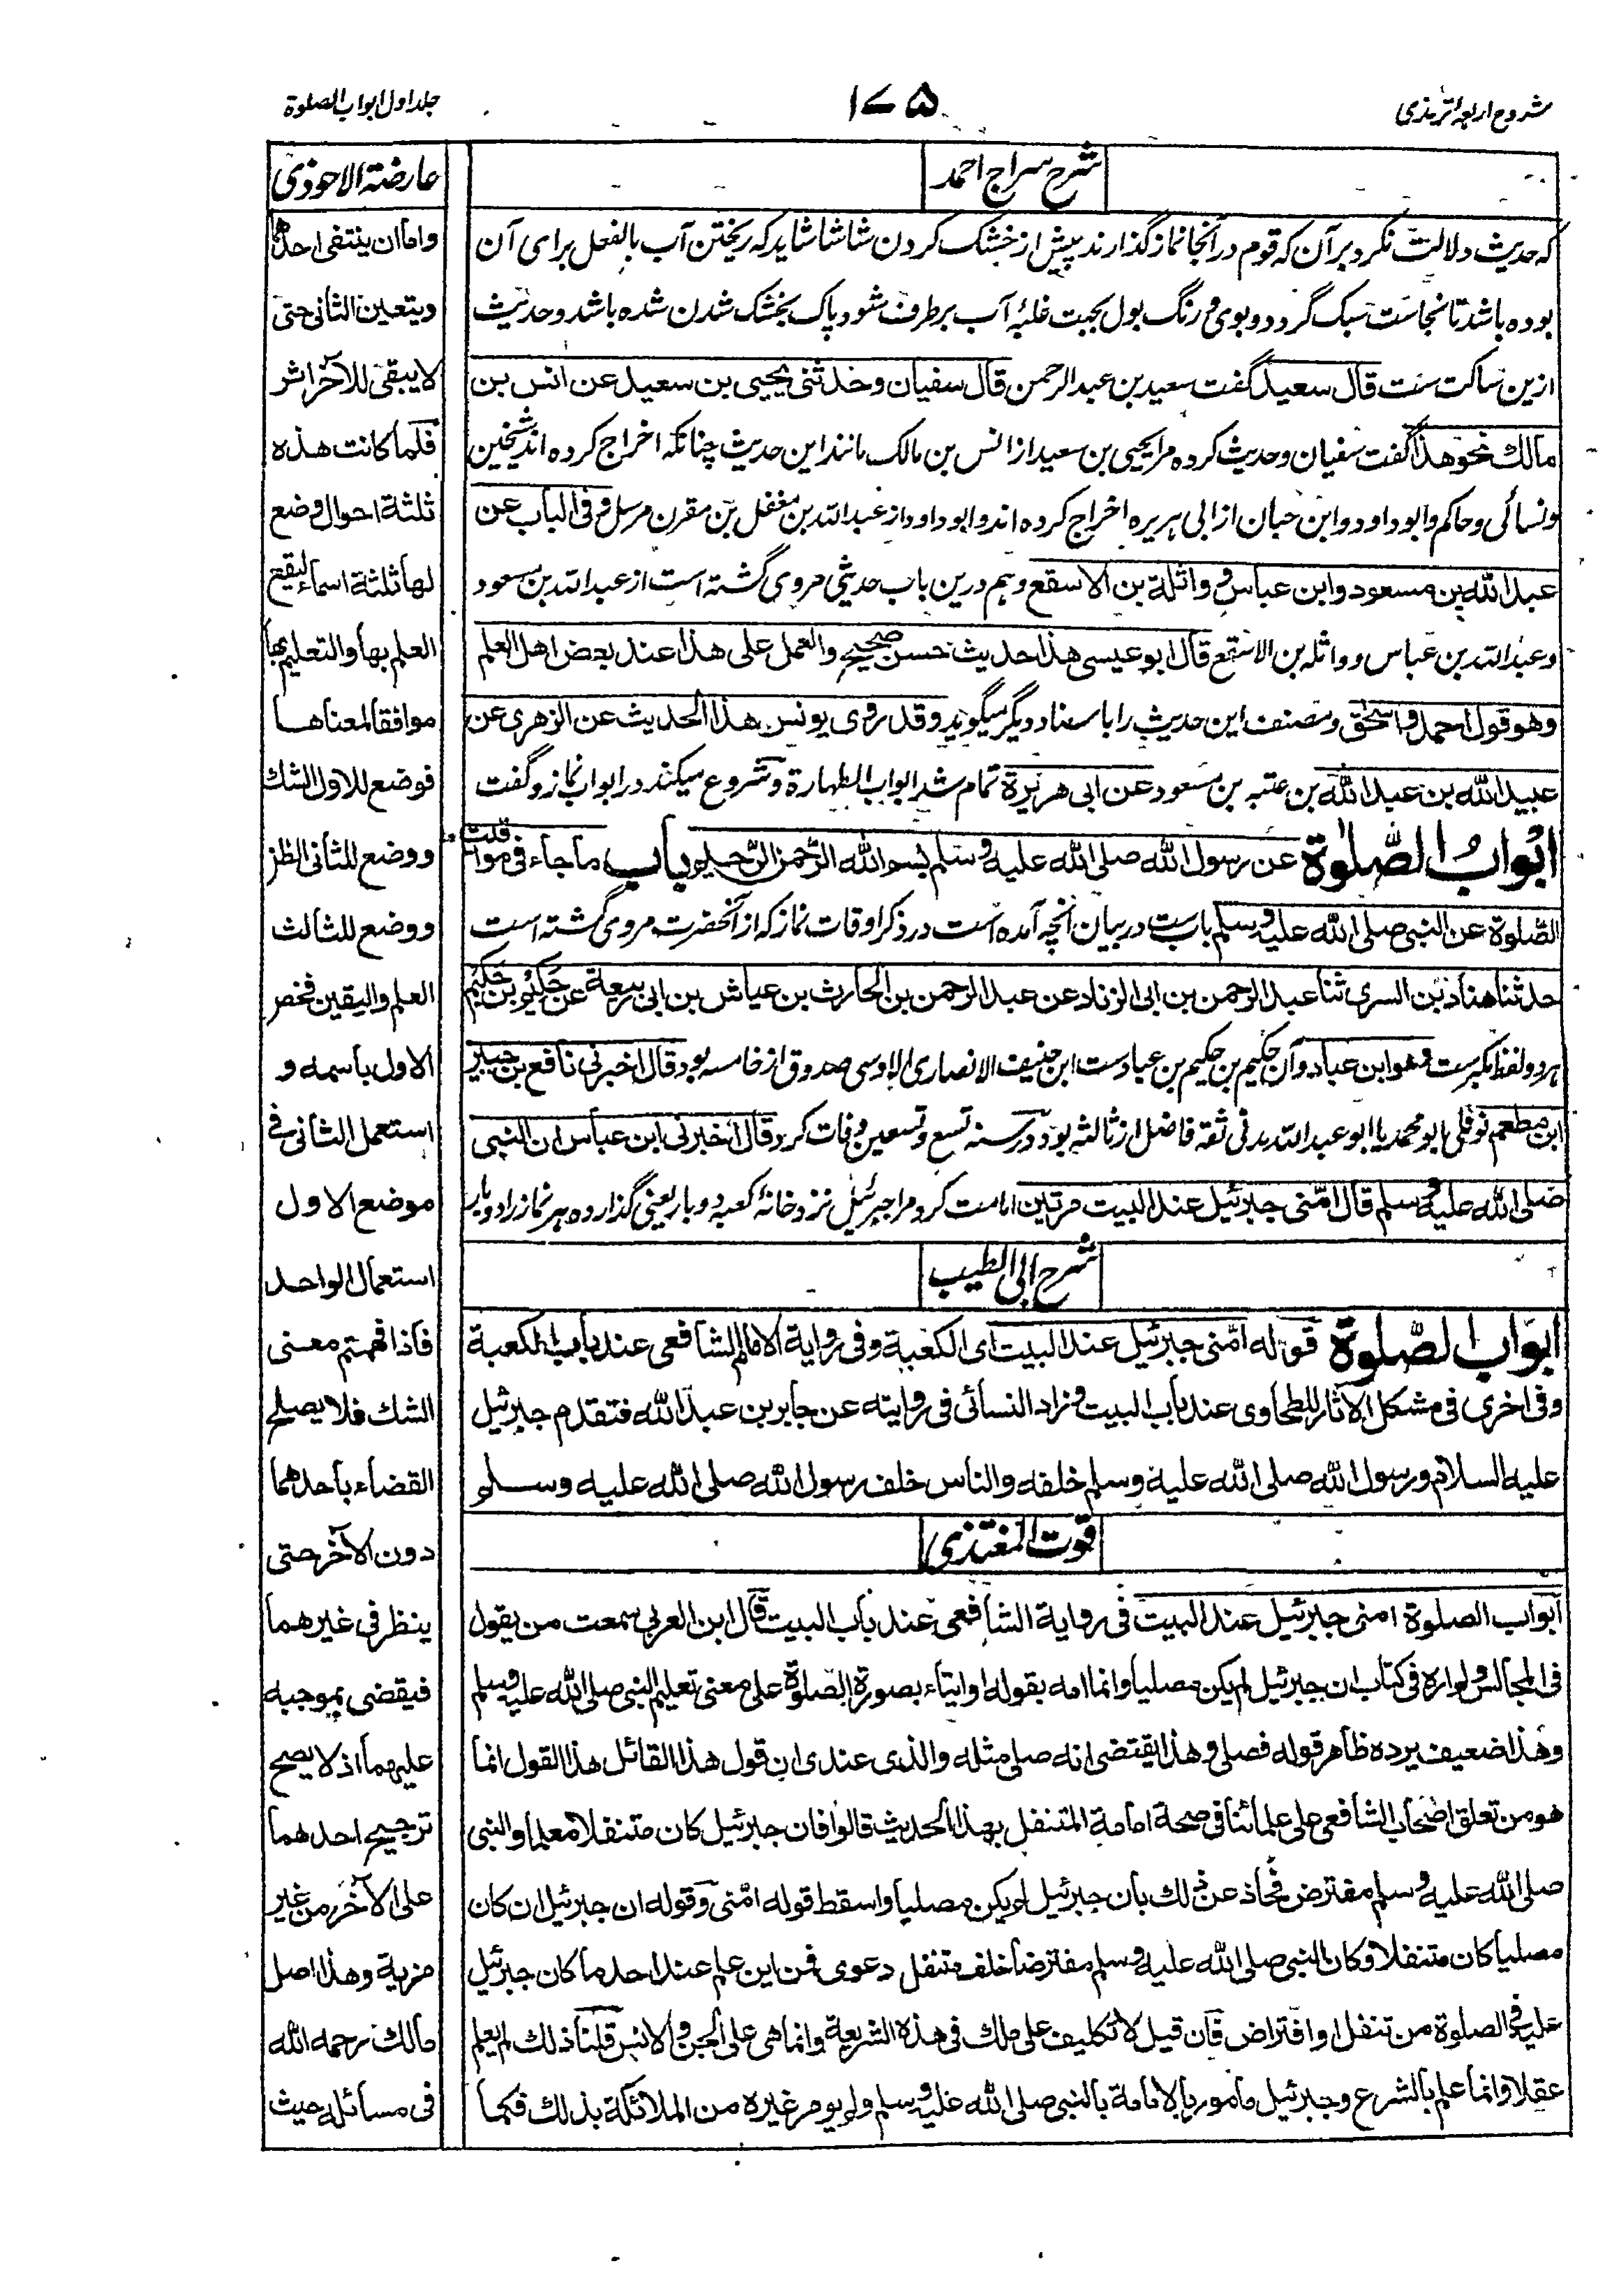 شروح اربعہ ترمذی
۱۷۵
جلد اول ابواب الصلوة
شرح سراج احمد
که حدیث دلالت نکرد بر آن که قوم در آنجا نماز گذارند پیش از خشک کردن شاشا شاید که ریختن آب بالفعل برای آن
بوده باشد تا نجاست سبک گردد و بوی و رنگ بول بجهت غلبۂ آب برطرف شود پاک بخشک شدن شده باشد و حدیث
ازین ساکت ست قال سعید گفت سعید بن عبد الرحمن قال سفیان وحدثنی یحیی بن سعید عن انس بن
مالك نحو هذا گفت سفیان وحدیث کرده مرا یحیی بن سعید از انس بن مالک مانند این حدیث چنانکه اخراج کرده اند شیخین
ونسائی وحاکم وابوداود وابن حبان از ابی هریره اخراج کرده اند وابوداود از عبد الله بن مغفل بن مقرن مرسل وفی الباب عن
عبد الله بن مسعود وابن عباس وواثلة بن الاسقع وهم درین باب حدیثی مروی گشته است از عبد الله بن مسعود
وعبد الله بن عباس وواثله بن الاسقع قال ابو عیسی هذا حدیث حسن صحیح والعمل علی هذا عند بعض اهل العلم
وهو قول احمد واسحق ومصنف این حدیث را باسناد دیگر میگوید وقد روی یونس هذا الحدیث عن الزهری عن
عبید الله بن عبد الله بن عتبه بن مسعود عن ابی هریرة تمام شد ابواب الطهارة وشروع میکند در ابواب نماز وگفت
ابواب الصلوة عن رسول الله صلی الله علیه وسلم بسم الله الرحمن الرحیم باب ما جاء فی مواقیت
الصلوة عن النبی صلی الله علیه وسلم بابست در بیان آنچه آمده است در ذکر اوقات نماز که از آنحضرت مروی گشته است
حدثنا هناد بن السری ثنا عبد الرحمن بن ابی الزناد عن عبد الرحمن بن الحارث بن عیاش بن ابی ربیعة عن حکیم بن حکیم
هر دو لفظ مکبرست وهو ابن عباد وآن حکیم بن حکیم بن عبادست ابن حنیف الانصاری الاوسی صدوق از خامسه بود قال اخبرنی نافع بن جبیر
ابن مطعم نوفلی ابو محمد یا ابو عبد الله مدنی ثقه فاضل از ثالثه بود در سنه تسع وتسعین وفات کرد قال اخبرنی ابن عباس ان النبی
صلی الله علیه وسلم قال امنی جبرئیل عند البیت مرتین امامت کرد مرا جبرئیل نزد خانۂ کعبه دو بار یعنی گذارده هر نماز را دو بار
شرح ابی الطیب
ابواب الصلوة قوله امنی جبرئیل عند البیت ای الکعبة وفی روایة الامام الشافعی عند باب الکعبة
وفی اخری فی مشکل الآثار للطحاوی عند باب البیت وزاد النسائی فی روایته عن جابر بن عبد الله فتقدم جبرئیل
علیه السلام ورسول الله صلی الله علیه وسلم خلفه والناس خلف رسول الله صلی الله علیه وسلم
قوت المغتذی
ابواب الصلوة امنی جبرئیل عند البیت فی روایة الشافعی عند باب البیت قال ابن العربی سمعت من یقول
فی المجالس ولم اره فی کتاب ان جبرئیل لم یکن مصلیا وانما امه بقوله او ایتاء بصورة الصلوة علی معنی تعلیم النبی صلی الله علیه وسلم
وهذا ضعیف یرده ظاهر قوله فصلی وهذا یقتضی انه صلی مثله والذی عندی ان قول هذا القائل هذا القول انما
هو من تعلق اصحاب الشافعی علی علمائنا فی صحة امامة المتنفل بهذا الحدیث قالوا فان جبرئیل کان متنفلا معلما والنبی
صلی الله علیه وسلم مفترض فحاذ عن ذلك بان جبرئیل لم یکن مصلیا واسقط قوله امنی وقوله ان جبرئیل ان کان
مصلیا کان متنفلا وکان النبی صلی الله علیه وسلم مفترضا خلف متنفل دعوی فمن این علم عند احد ما کان جبرئیل
علیه فی الصلوة من تنفل او افتراض فان قیل لا تکلیف علی ملك فی هذه الشریعة وانما هی علی الجن والانس قلنا ذلك لم یعلم
عقلا وانما علم بالشرع وجبرئیل مامور بالامامة بالنبی صلی الله علیه وسلم ولم یومر غیره من الملائکة بذلك فکما
عارضة الاحوذی
واما ان ینتفی احدهما
ویتعین الثانی حتی
لا یبقی للآخر اثر
فلما کانت هذه
ثلثة احوال وضع
لها ثلثة اسماء لیقع
العلم بها والتعلیم بها
موافقا لمعناها
فوضع للاول الشك
ووضع للثانی الظن
ووضع للثالث
العلم والیقین فخص
الاول باسمه و
استعمل الثانی فی
موضع الاول
استعمال الواحد
فاذا فهمتم معنی
الشك فلا یصلح
القضاء باحدهما
دون الآخر حتی
ینظر فی غیرهما
فیقضی بموجبه
علیهما اذ لا یصح
ترجیح احدهما
علی الآخر من غیر
مزیة وهذا اصل
مالك رحمه الله
فی مسائله حیث